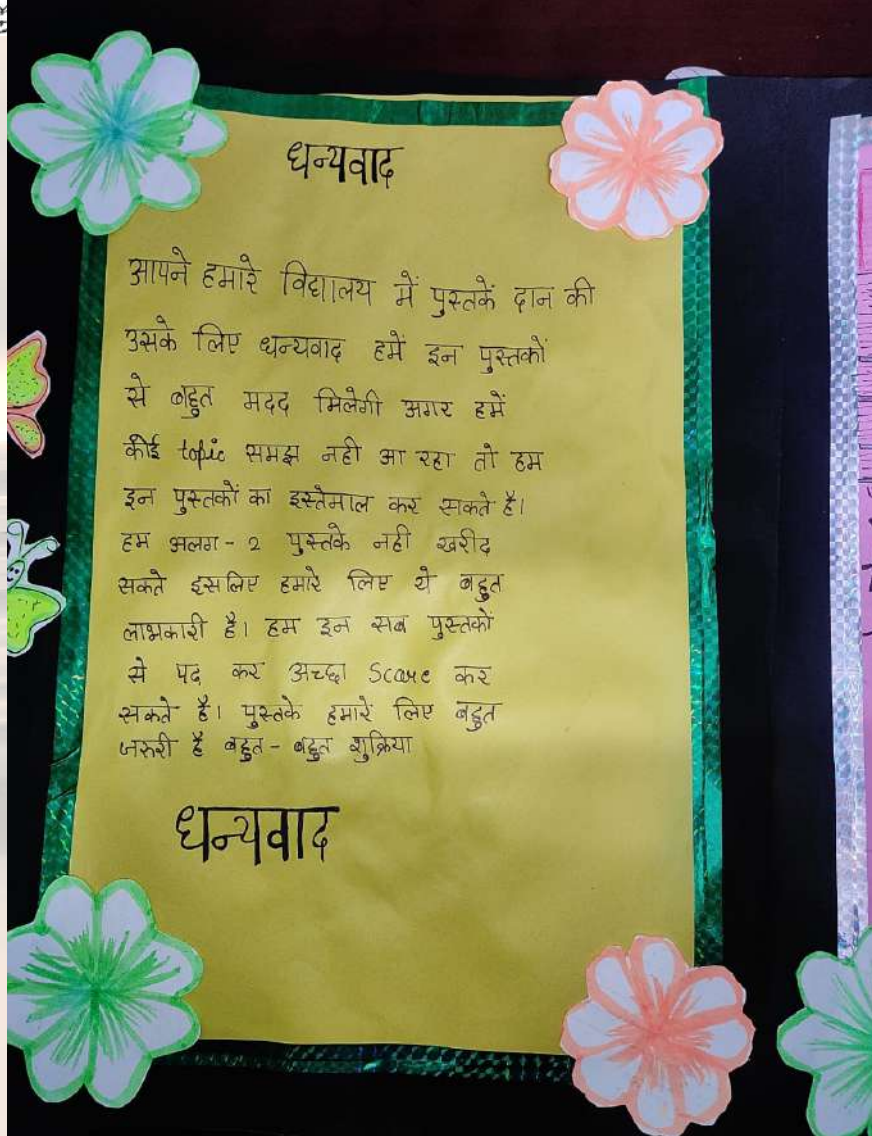 धन्यवाद
आपने हमारे विद्यालय में पुस्तकें दान की
उसके लिए धन्यवाद हमें इन पुस्तकों
से बहुत मदद मिलेगी अगर हमें
कोई topic समझ नही आ रहा तो हम
इन पुस्तकों का इस्तेमाल कर सकते है।
हम अलग - 2 पुस्तके नही खरीद
सकते इसलिए हमारे लिए ये बहुत
लाभकारी है। हम इन सब पुस्तकों
से पढ़ कर अच्छा Score कर
सकते है। पुस्तके हमारे लिए बहुत
जरुरी है बहुत - बहुत शुक्रिया
धन्यवाद